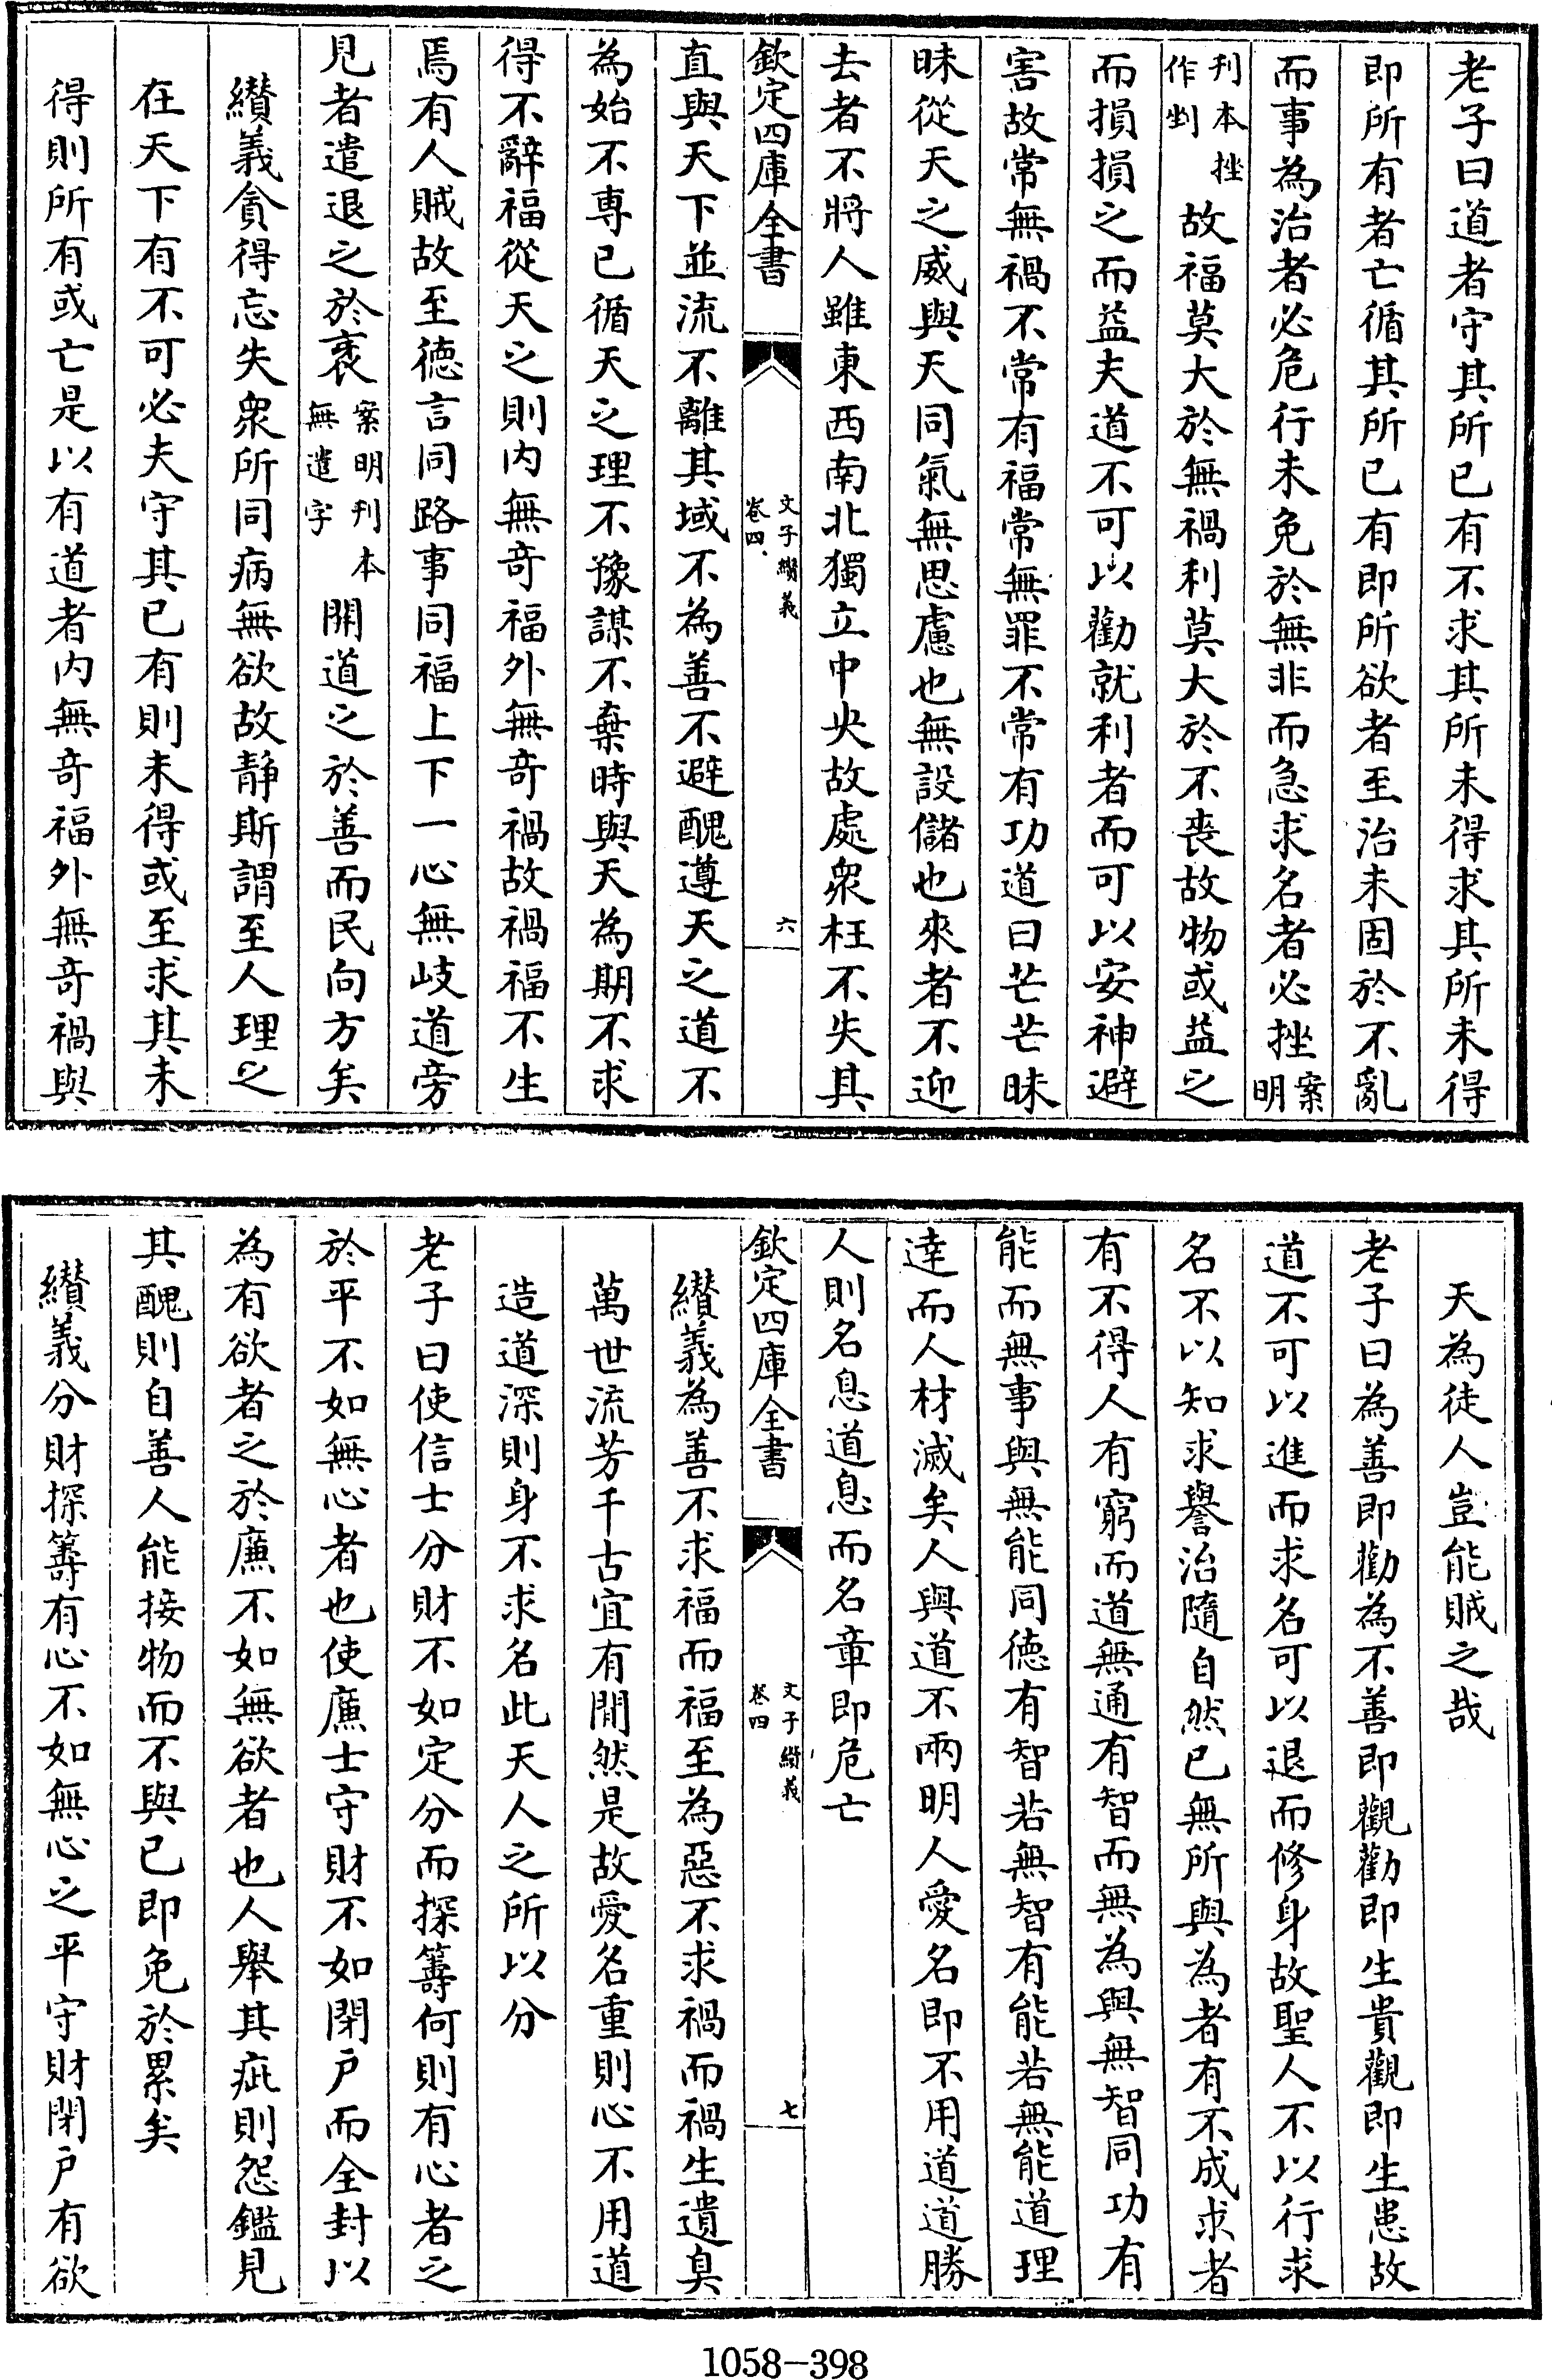 老子曰道者守其所已有不求其所未得求其所未得
即所有者亡循其所已有即所欲者至治未固於不亂
而事為治者必危行未免於無非而急求名者必挫案明
刊本挫作剉故福莫大於無禍利莫大於不喪故物或益之
而損損之而益夫道不可以勸就利者而可以安神避
害故常無禍不常有福常無罪不常有功道曰芒芒昧
昧從天之威與天同氣無思慮也無設儲也來者不迎
去者不將人雖東西南北獨立中央故處衆枉不失其
欽定四庫全書
文子纘義
卷四
六
直與天下並流不離其域不為善不避醜遵天之道不
為始不専已循天之理不豫謀不棄時與天為期不求
得不辭福從天之則内無奇福外無奇禍故禍福不生
焉有人賊故至徳言同路事同福上下一心無岐道旁
見者遣退之於衺案明刊本無遣字開道之於善而民向方矣
纘義貪得忘失衆所同病無欲故静斯謂至人理之
在天下有不可必夫守其已有則未得或至求其未
得則所有或亡是以有道者内無奇福外無奇禍與
天為徒人豈能賊之哉
老子曰為善即勸為不善即觀勸即生貴觀即生患故
道不可以進而求名可以退而修身故聖人不以行求
名不以知求譽治隨自然已無所與為者有不成求者
有不得人有窮而道無通有智而無為與無智同功有
能而無事與無能同徳有智若無智有能若無能道理
達而人材滅矣人與道不兩明人愛名即不用道道勝
人則名息道息而名章即危亡
欽定四庫全書
文子纘義
卷四
七
纘義為善不求福而福至為惡不求禍而禍生遺臭
萬世流芳千古宜有閒然是故愛名重則心不用道
造道深則身不求名此天人之所以分
老子曰使信士分財不如定分而探籌何則有心者之
於平不如無心者也使廉士守財不如閉户而全封以
為有欲者之於廉不如無欲者也人舉其疵則怨鑑見
其醜則自善人能接物而不與已即免於累矣
纘義分財探籌有心不如無心之平守財閉户有欲
1058-398